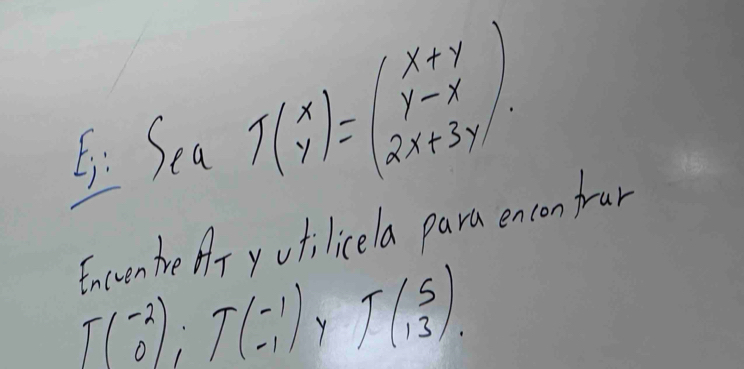 Ej: Sea T(x y) = (x+y y-x 2x+3y).
Encuentre A_T y utilicela para encontrar
T(-2 0); T(-1 -1) y T(5 13).